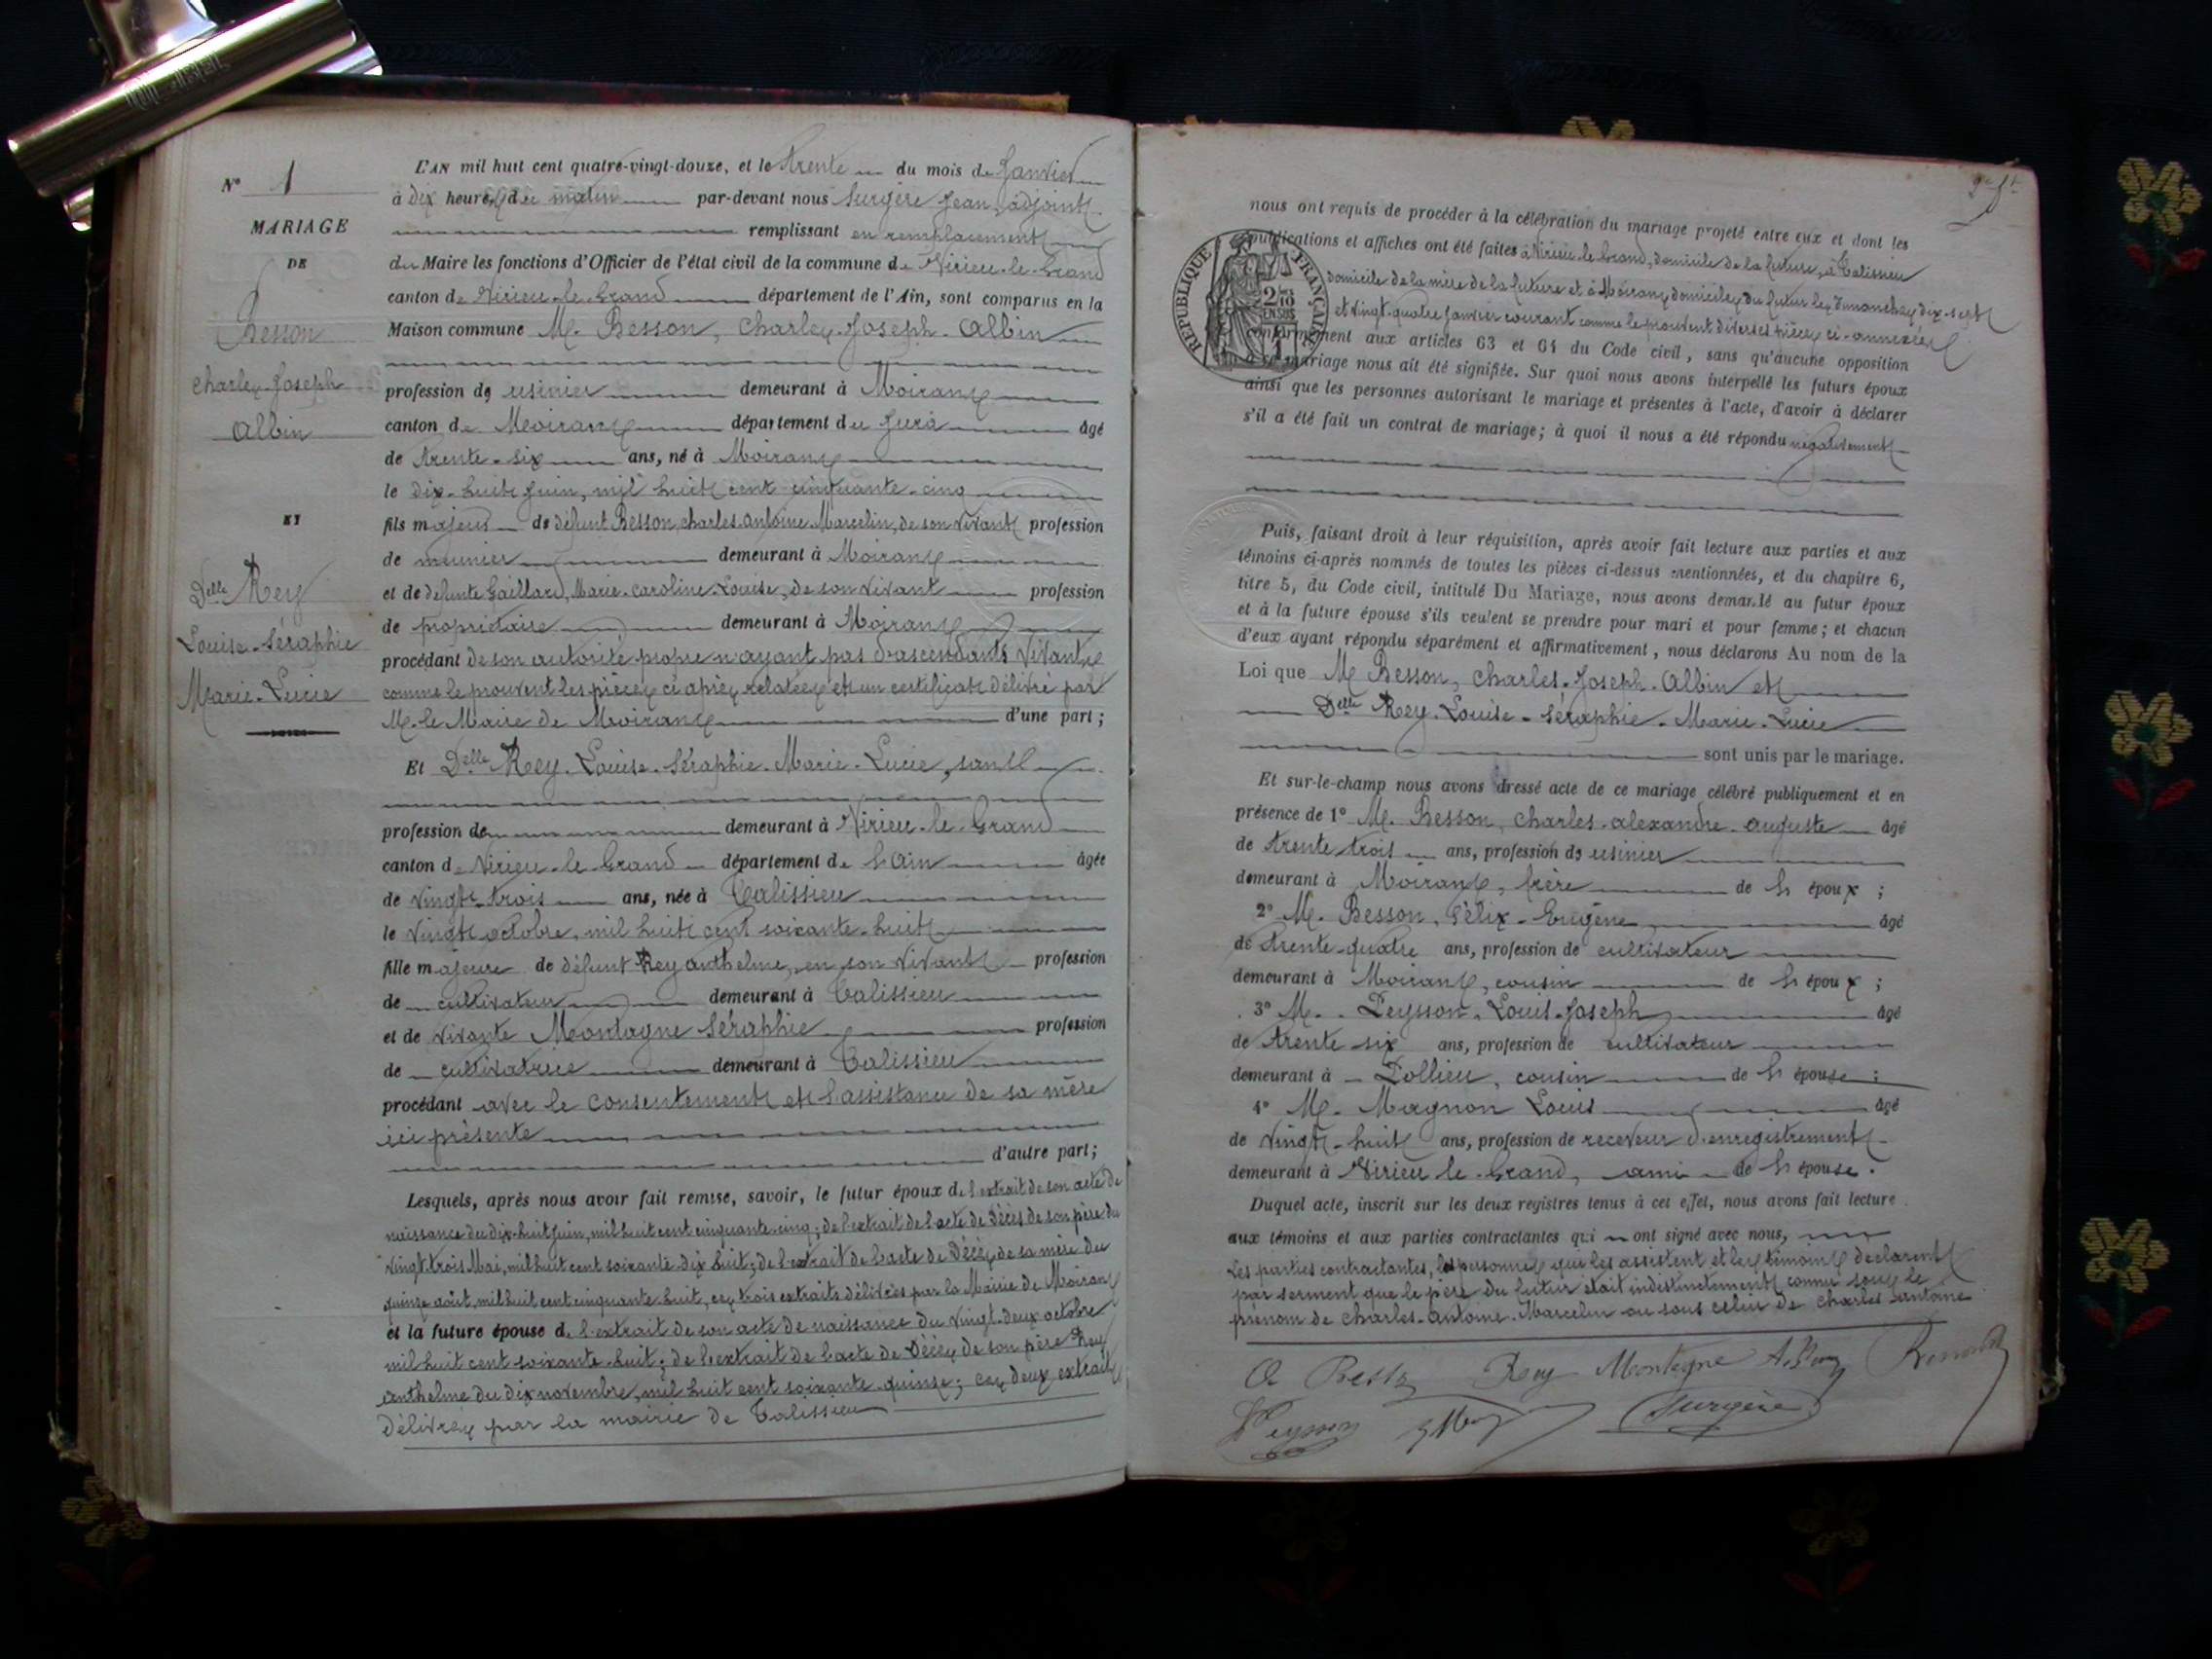 N° 1
MARIAGE
DE
Besson
Charles-Joseph
Albin
ET
Delle Rey
Louise-Séraphie
Marie-Lucie
L'AN mil huit cent quatre-vingt-douze, et le trente du mois de Janvier
à dix heures du matin par-devant nous Surgère Jean, adjoint
remplissant en remplacement
du Maire les fonctions d'Officier de l'état civil de la commune de Virieu-le-Grand
canton de Virieu-le-Grand département de l'Ain, sont comparus en la
Maison commune M. Besson, Charles-Joseph-Albin
profession de usinier demeurant à Moirans
canton de Moirans département du Jura âgé
de trente-six ans, né à Moirans
le dix-huit Juin, mil huit cent cinquante-cinq
fils majeur de défunt Besson, Charles Antoine Marcelin, de son vivant profession
de meunier demeurant à Moirans
et de défunte Gaillard, Marie-Caroline-Louise, de son vivant profession
de propriétaire demeurant à Moirans
procédant de son autorité propre n'ayant pas d'ascendants vivants
comme le prouvent les pièces ci après relatées et un certificat délivré par
M. le Maire de Moirans d'une part ;
Et Delle Rey-Louise-Séraphie-Marie-Lucie, sans
profession de demeurant à Virieu-le-Grand
canton de Virieu-le-Grand département de l'Ain âgée
de vingt-trois ans, née à Talissieu
le vingt octobre, mil huit cent soixante-huit
fille majeure de défunt Rey Anthelme, en son vivant profession
de cultivateur demeurant à Talissieu
et de vivante Montagne Séraphie profession
de cultivatrice demeurant à Talissieu
procédant avec le consentement et l'assistance de sa mère
ici présente
d'autre part;
Lesquels, après nous avoir fait remise, savoir, le futur époux de l'extrait de son acte de
naissance du dix-huit Juin, mil huit cent cinquante-cinq ; de l'extrait de l'acte de décès de son père du
vingt-trois Mai, mil huit cent soixante-dix huit ; de l'extrait de l'acte de décès de sa mère du
quinze août, mil huit cent cinquante-huit, ces trois extraits délivrés par la Mairie de Moirans
et la future épouse de l'extrait de son acte de naissance du vingt-deux octobre
mil huit cent soixante-huit ; de l'extrait de l'acte de décès de son père Rey
Anthelme du dix novembre, mil huit cent soixante-quinze ; ces deux extraits
délivrés par la mairie de Talissieu
nous ont requis de procéder à la célébration du mariage projeté entre eux et dont les
publications et affiches ont été faites à Virieu-le-Grand, domicile de la future, à Talissieu
domicile de la mère de la future et à Moirans domicile du futur les dimanches dix-sept
et vingt-quatre Janvier courant comme le prouvent diverses pièces ci-annexées
conformément aux articles 63 et 64 du Code civil, sans qu'aucune opposition
au dit mariage nous ait été signifiée. Sur quoi nous avons interpellé les futurs époux
ainsi que les personnes autorisant le mariage et présentes à l'acte, d'avoir à déclarer
s'il a été fait un contrat de mariage; à quoi il nous a été répondu négativement
RÉPUBLIQUE FRANÇAISE
Puis, faisant droit à leur réquisition, après avoir fait lecture aux parties et aux
témoins ci-après nommés de toutes les pièces ci-dessus mentionnées, et du chapitre 6,
titre 5, du Code civil, intitulé Du Mariage, nous avons demandé au futur époux
et à la future épouse s'ils veulent se prendre pour mari et pour femme ; et chacun
d'eux ayant répondu séparément et affirmativement, nous déclarons Au nom de la
Loi que M. Besson, Charles-Joseph-Albin et
Delle Rey-Louise-Séraphie-Marie-Lucie
sont unis par le mariage.
Et sur-le-champ nous avons dressé acte de ce mariage célébré publiquement et en
présence de 1° M. Besson, Charles-Alexandre-Auguste âgé
de trente trois ans, profession de usinier
demeurant à Moirans, frère de l'époux ;
2° M. Besson, Félix-Eugène âgé
de trente-quatre ans, profession de cultivateur
demeurant à Moirans, cousin de l'époux ;
3° M. Peysson, Louis-Joseph âgé
de trente six ans, profession de cultivateur
demeurant à Pollieu, cousin de l'épouse ;
4° M. Magnon Louis âgé
de vingt-huit ans, profession de receveur d'enregistrement
demeurant à Virieu le Grand, ami de l'épouse.
Duquel acte, inscrit sur les deux registres tenus à cet effet, nous avons fait lecture
aux témoins et aux parties contractantes qui ont signé avec nous,
Les parties contractantes, les personnes qui les assistent et les témoins déclarent
par serment que le père du futur était indistinctement connu sous le
prénom de Charles-Antoine-Marcelin ou sous celui de Charles Antoine
Rey Montagne
Peysson Surgère